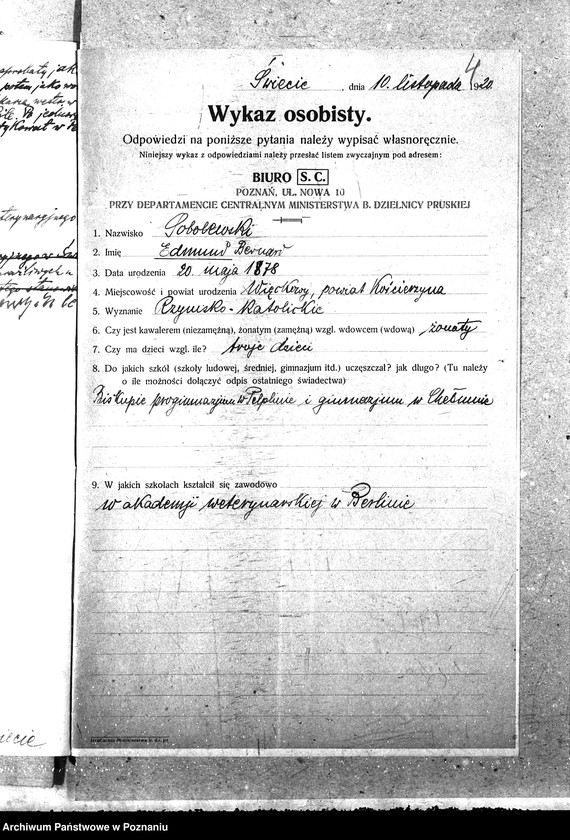 Świecie, dnia 10. listopada 1920.
4
Wykaz osobisty.
Odpowiedzi na poniższe pytania należy wypisać własnoręcznie.
Niniejszy wykaz z odpowiedziami należy przesłać listem zwyczajnym pod adresem:
BIURO S. C.
POZNAŃ, UL. NOWA 10
PRZY DEPARTAMENCIE CENTRALNYM MINISTERSTWA B. DZIELNICY PRUSKIEJ
1. Nazwisko Sobolewski
2. Imię Edmund Bernard
3. Data urodzenia 20. maja 1878
4. Miejscowość i powiat urodzenia Więckowy, powiat Kościerzyna
5. Wyznanie Rzymsko-Katolickie
6. Czy jest kawalerem (niezamężną), żonatym (zamężną) wzgl. wdowcem (wdową) żonaty
7. Czy ma dzieci wzgl. ile? troje dzieci
8. Do jakich szkół (szkoły ludowej, średniej, gimnazjum itd.) uczęszczał? jak długo? (Tu należy
o ile możności dołączyć odpis ostatniego świadectwa)
Biskupie progimnazjum w Pelplinie i gimnazjum w Chełmnie
9. W jakich szkołach kształcił się zawodowo
w akademji weterynarskiej w Berlinie
Archiwum Państwowe w Poznaniu